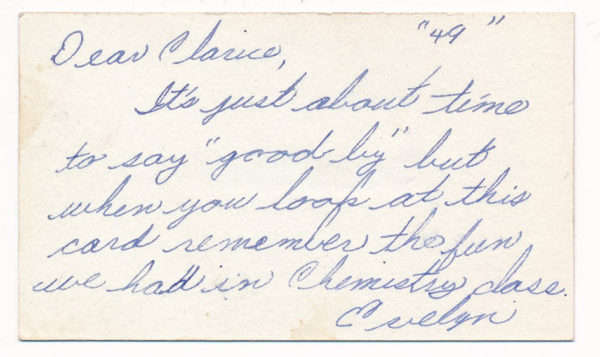 "49"
Dear Clarice,
It's just about time
to say "good by" but
when you look at this
card remember the fun
we had in Chemistry class.
Evelyn